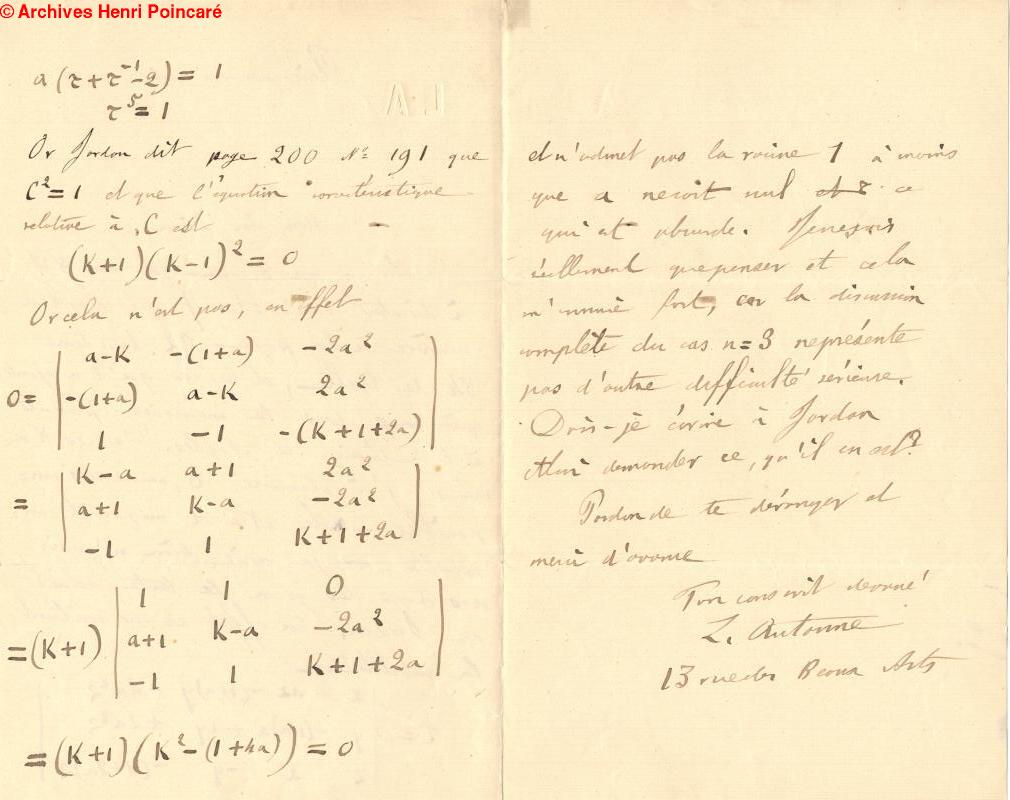 © Archives Henri Poincaré
a(τ+τ⁻¹-2) = 1
τ⁵ = 1
Or Jordan dit page 200 Nº 191 que
C² = 1 et que l'équation caractéristique
relative à C est
(K+1)(K-1)² = 0
Or cela n'est pas, en effet
0 = | a-K -(1+a) -2a² |
| -(1+a) a-K 2a² |
| 1 -1 -(K+1+2a) |
= | K-a a+1 2a² |
| a+1 K-a -2a² |
| -1 1 K+1+2a |
= (K+1) | 1 1 0 |
| a+1 K-a -2a² |
| -1 1 K+1+2a |
= (K+1)(K²-(1+4a)) = 0
et n'admet pas la racine 1 à moins
que a ne soit nul ce
qui est absurde. Je ne sais
réellement que penser et cela
m'ennuie fort, car la discussion
complète du cas n=3 ne présente
pas d'autre difficulté sérieuse.
Dois-je écrire à Jordan
et lui demander ce, qu'il en est?
Pardon de te déranger et
merci d'avance
Ton conscrit dévoué
L. Autonne
13 rue des Beaux Arts